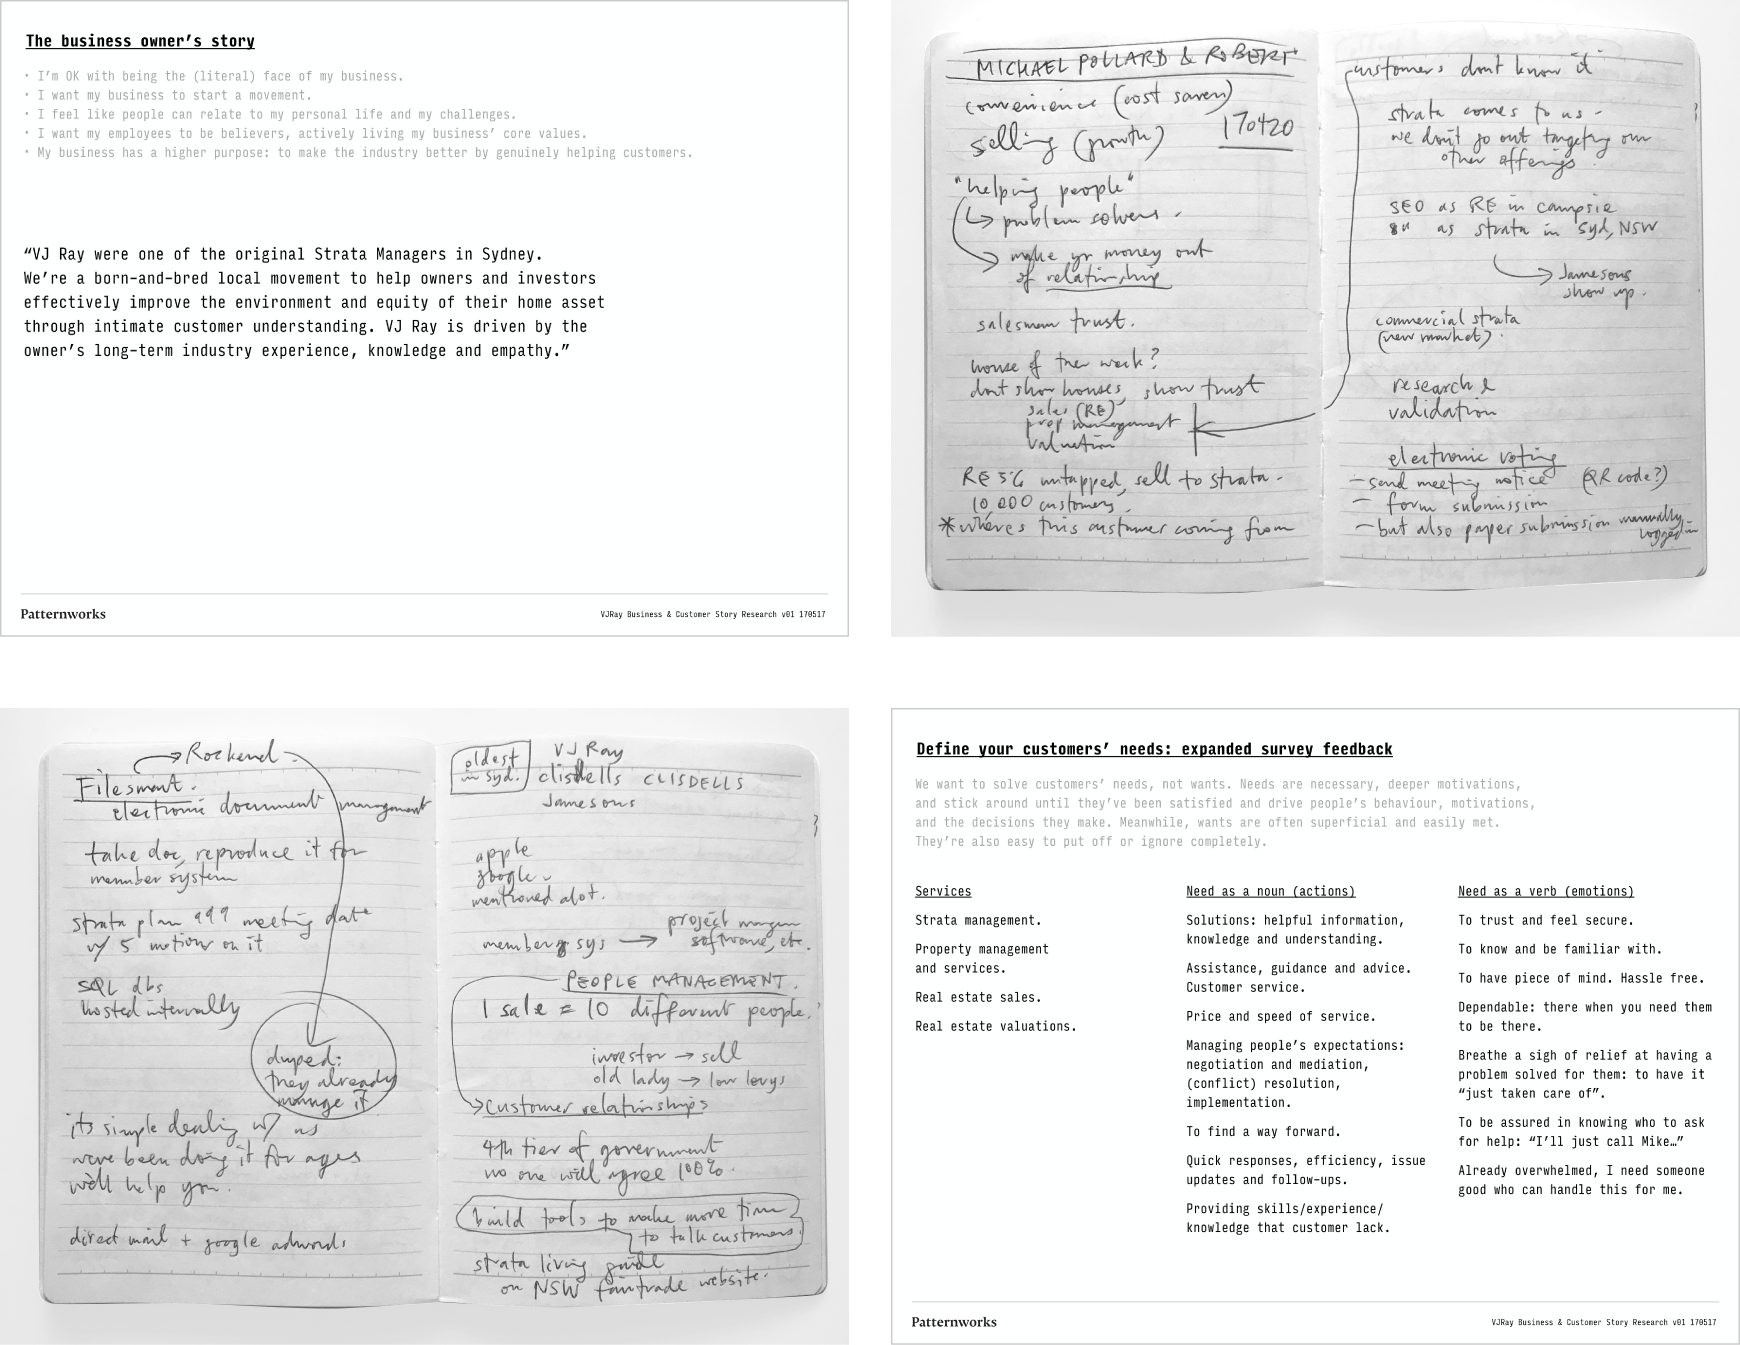 The business owner’s story
• I’m OK with being the (literal) face of my business.
• I want my business to start a movement.
• I feel like people can relate to my personal life and my challenges.
• I want my employees to be believers, actively living my business’ core values.
• My business has a higher purpose: to make the industry better by genuinely helping customers.
“VJ Ray were one of the original Strata Managers in Sydney.
We’re a born-and-bred local movement to help owners and investors
effectively improve the environment and equity of their home asset
through intimate customer understanding. VJ Ray is driven by the
owner’s long-term industry experience, knowledge and empathy.”
Patternworks
VJRay Business & Customer Story Research v01 170517
MICHAEL POLLARD & ROBERT
convenience (cost saver)
170420
selling (growth)
"helping people"
problem solvers.
make yr money out
of relationship
salesmen trust.
house of the week?
dont show houses, show trust
sales (RE)
prop management
valuation
RE 5% untapped, sell to strata.
10,000 customers.
*where's this customer coming from
customers dont know it
strata comes to us -
we don't go out targeting our
other offerings
SEO as RE in campsie
as strata in Syd, NSW
Jamesons
show up.
commercial strata
(new market).
research &
validation
electronic voting
- send meeting notice (QR code?)
- form submission
- but also paper submission manually
logged in
Rockend
Filesmart.
electronic document management
take doc, reproduce it for
member system
strata plan 999 meeting date
w/ 5 motions on it
SQL dbs
hosted internally
duped:
they already
manage it
its simple dealing w/ us
weve been doing it for ages
we'll help you.
direct mail + google adwords
oldest
in Syd.
VJ Ray
clisdells CLISDELLS
Jamesons
apple
google
mentioned alot.
members sys → project manager
software, etc.
PEOPLE MANAGEMENT.
1 sale = 10 different people.
investor → sell
old lady → low levys
Customer relationships
4th tier of government
no one will agree 100%.
build tools to make more time
to talk customers.
strata living guide
on NSW fairtrade website.
Define your customers’ needs: expanded survey feedback
We want to solve customers’ needs, not wants. Needs are necessary, deeper motivations,
and stick around until they’ve been satisfied and drive people’s behaviour, motivations,
and the decisions they make. Meanwhile, wants are often superficial and easily met.
They’re also easy to put off or ignore completely.
Services
Strata management.
Property management
and services.
Real estate sales.
Real estate valuations.
Need as a noun (actions)
Solutions: helpful information,
knowledge and understanding.
Assistance, guidance and advice.
Customer service.
Price and speed of service.
Managing people’s expectations:
negotiation and mediation,
(conflict) resolution,
implementation.
To find a way forward.
Quick responses, efficiency, issue
updates and follow-ups.
Providing skills/experience/
knowledge that customer lack.
Need as a verb (emotions)
To trust and feel secure.
To know and be familiar with.
To have piece of mind. Hassle free.
Dependable: there when you need them
to be there.
Breathe a sigh of relief at having a
problem solved for them: to have it
“just taken care of”.
To be assured in knowing who to ask
for help: “I’ll just call Mike…”
Already overwhelmed, I need someone
good who can handle this for me.
Patternworks
VJRay Business & Customer Story Research v01 170517